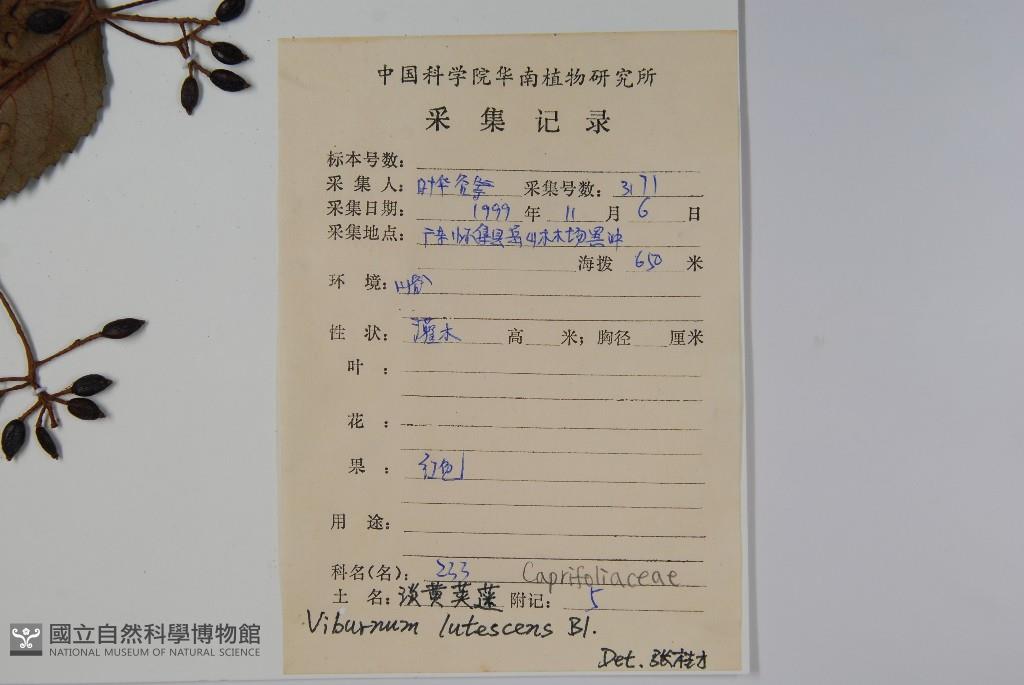 中国科学院华南植物研究所
采集记录
标本号数:
采集人: 叶华谷等 采集号数: 3171
采集日期: 1999年 11月 6日
采集地点: 广东怀集县 林场黑冲
海拨 650 米
环境:
性状: 灌木 高 米; 胸径 厘米
叶:
花:
果: 红色
用途:
科名(名): 233 Caprifoliaceae
土名: 淡黄荚蒾 附记: 5
Viburnum lutescens Bl.
Det. 张桂才
國立自然科學博物館
NATIONAL MUSEUM OF NATURAL SCIENCE